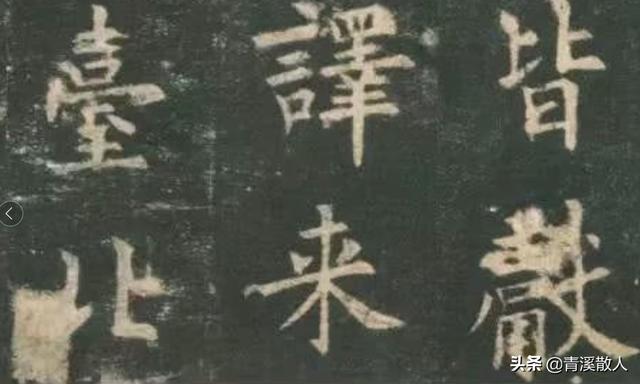 皆獻
譯来
臺北
头条 @青溪散人